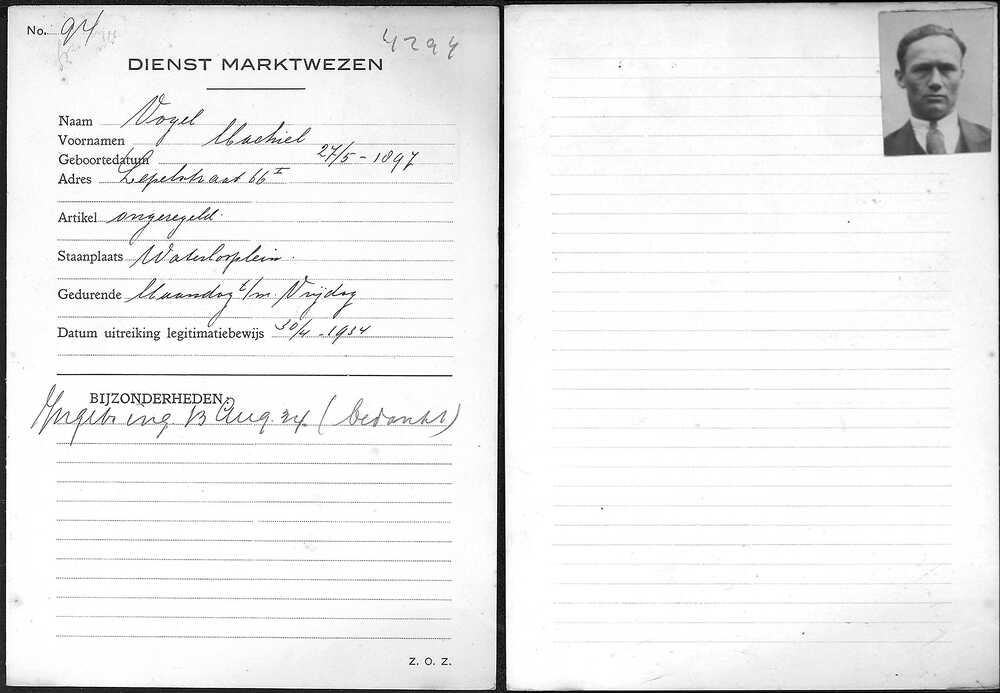 No. 94
4294
DIENST MARKTWEZEN
Naam Vogel
Voornamen Machiel
Geboortedatum 27/5 - 1897
Adres Lepelstraat 66 I
Artikel ongeregeld.
Staanplaats Waterlooplein.
Gedurende Maandag t/m. Vrijdag
Datum uitreiking legitimatiebewijs 30/4 - 1934
BIJZONDERHEDEN
ing. 13 Aug. 34 (bedankt)
Z. O. Z.